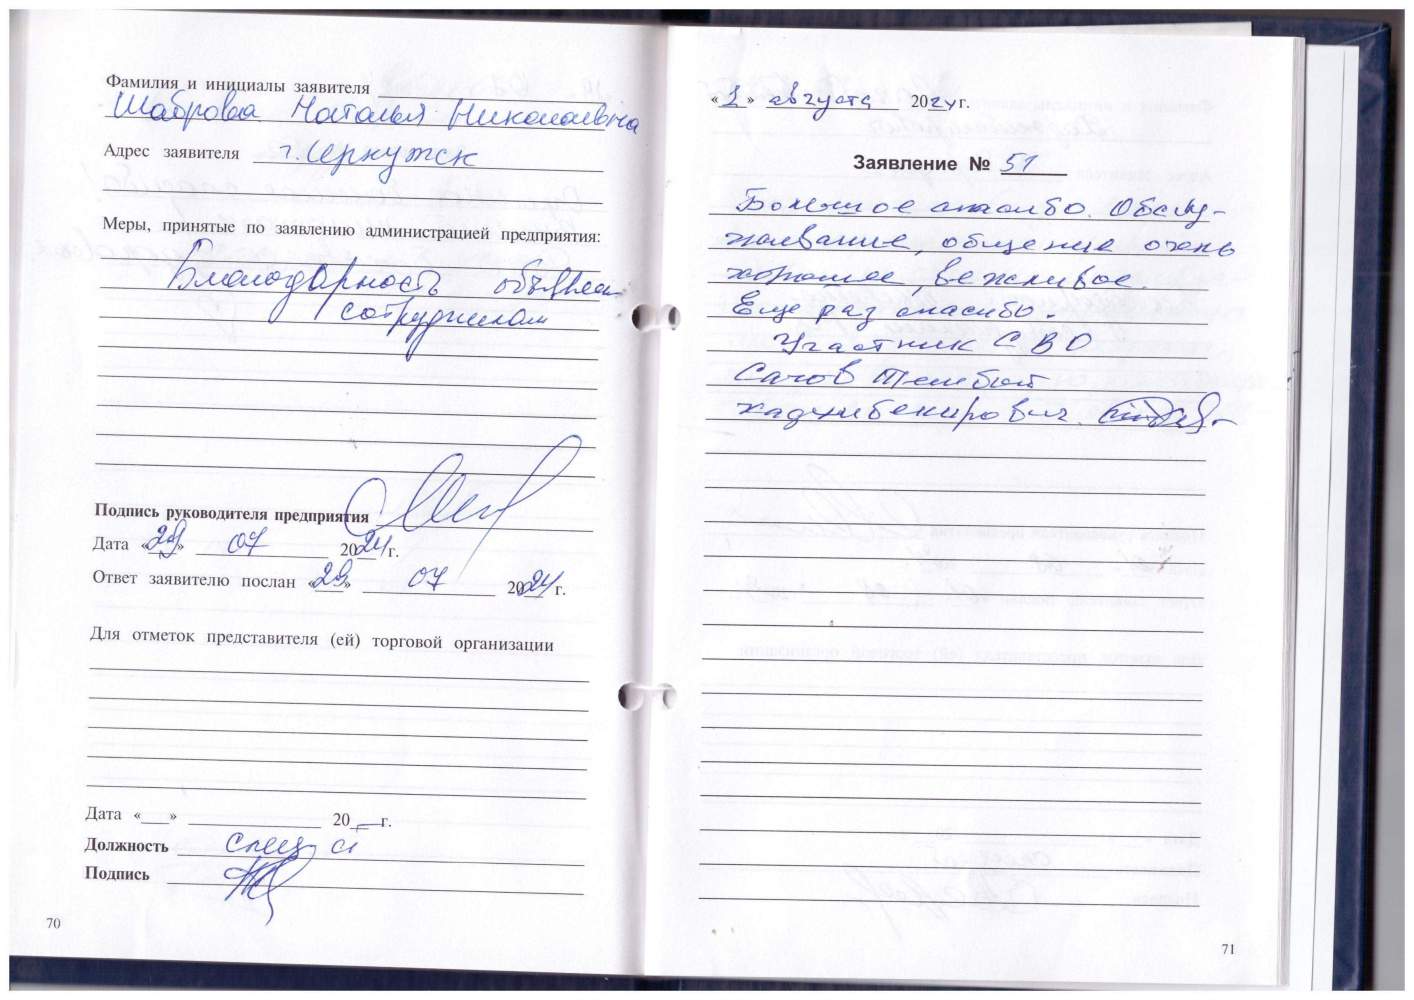 Фамилия и инициалы заявителя
Шаброва Наталья Николаевна
Адрес заявителя г. Серкутск
Меры, принятые по заявлению администрацией предприятия:
Благодарность объявлена
сотрудникам
Подпись руководителя предприятия
Дата «29» 07 2024 г.
Ответ заявителю послан «29» 07 2024 г.
Для отметок представителя (ей) торговой организации
Дата «___» 20 г.
Должность спец
Подпись
70
«1» августа 2024 г.
Заявление № 51
Большое спасибо. Обслу-
живание, общение очень
хорошее, вежливое.
Еще раз спасибо.
Участник СВО
71